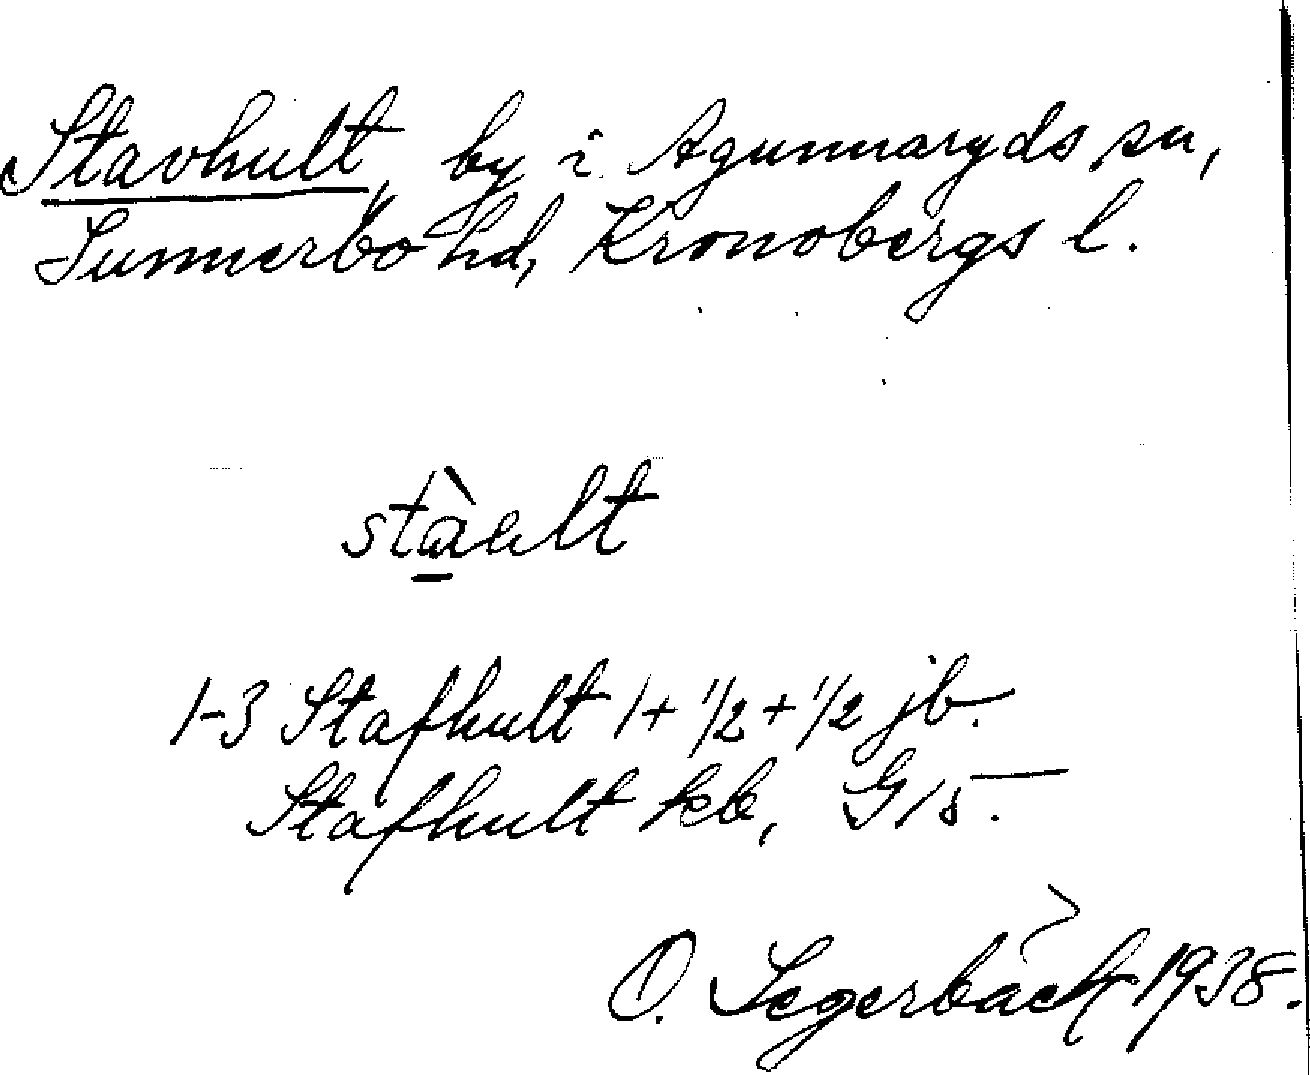 Stavhult, by i Agunnaryds sn,
Sunnerbo hd, Kronobergs l.
stàult
1-3 Stafhult 1+ 1/2 + 1/2 jb.
Stafhult kb, G 15.
O. Segerbäck 1938.